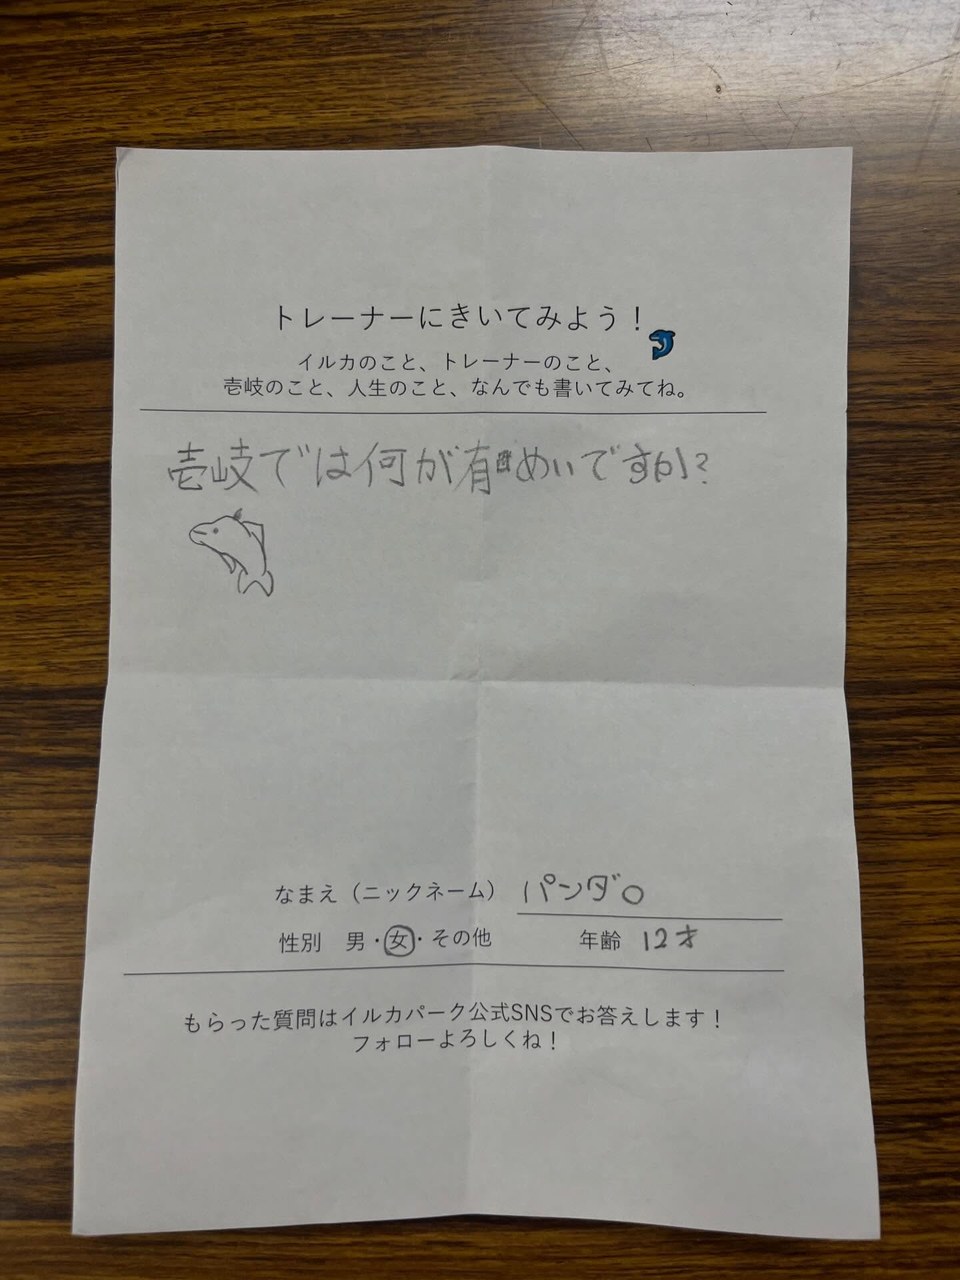 トレーナーにきいてみよう！
イルカのこと、トレーナーのこと、
壱岐のこと、人生のこと、なんでも書いてみてね。
壱岐では何が有めいですか?
なまえ（ニックネーム） パンダ○
性別 男・女・その他 年齢 12才
もらった質問はイルカパーク公式SNSでお答えします！
フォローよろしくね！